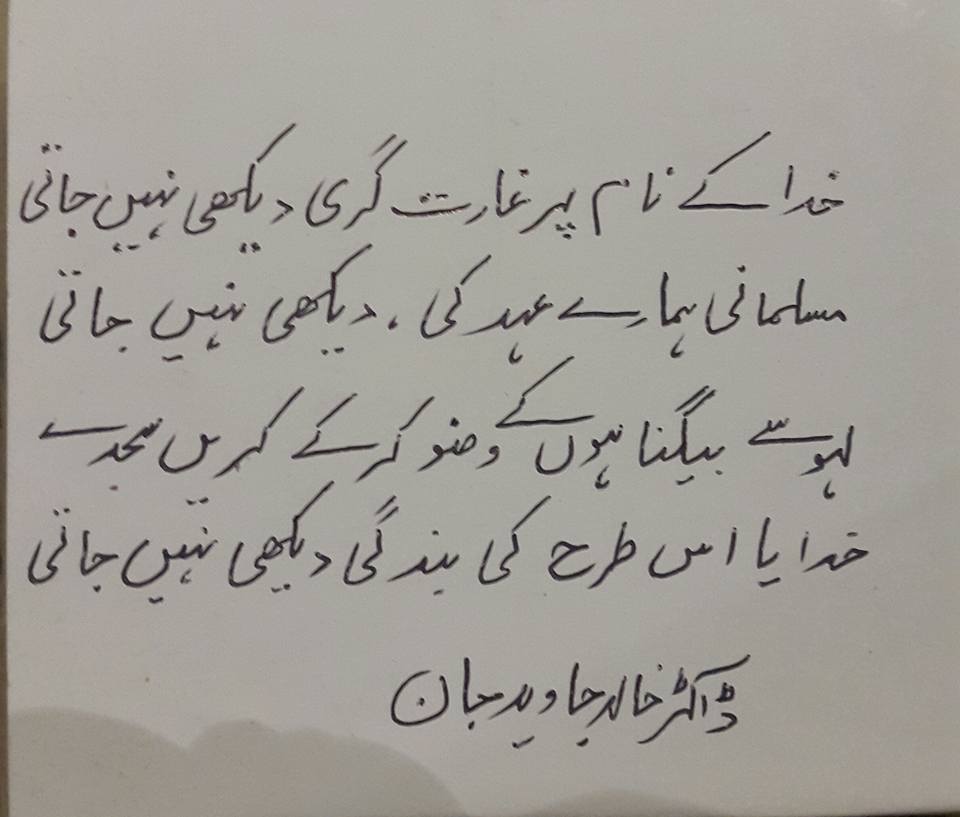 خدا کے نام پر غارت گری دیکھی نہیں جاتی
مسلمانی ہمارے عہد کی ، دیکھی نہیں جاتی
لہو سے بیگناہوں کے وضو کر کے کریں سجدے
خدایا اس طرح کی بندگی دیکھی نہیں جاتی
ڈاکٹر خالد جاوید جان